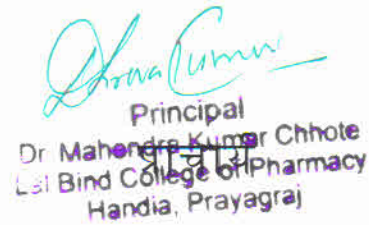 Principal
Dr Mahendra Kumar Chhote
प्राचार्य
Lal Bind College of Pharmacy
Handia, Prayagraj